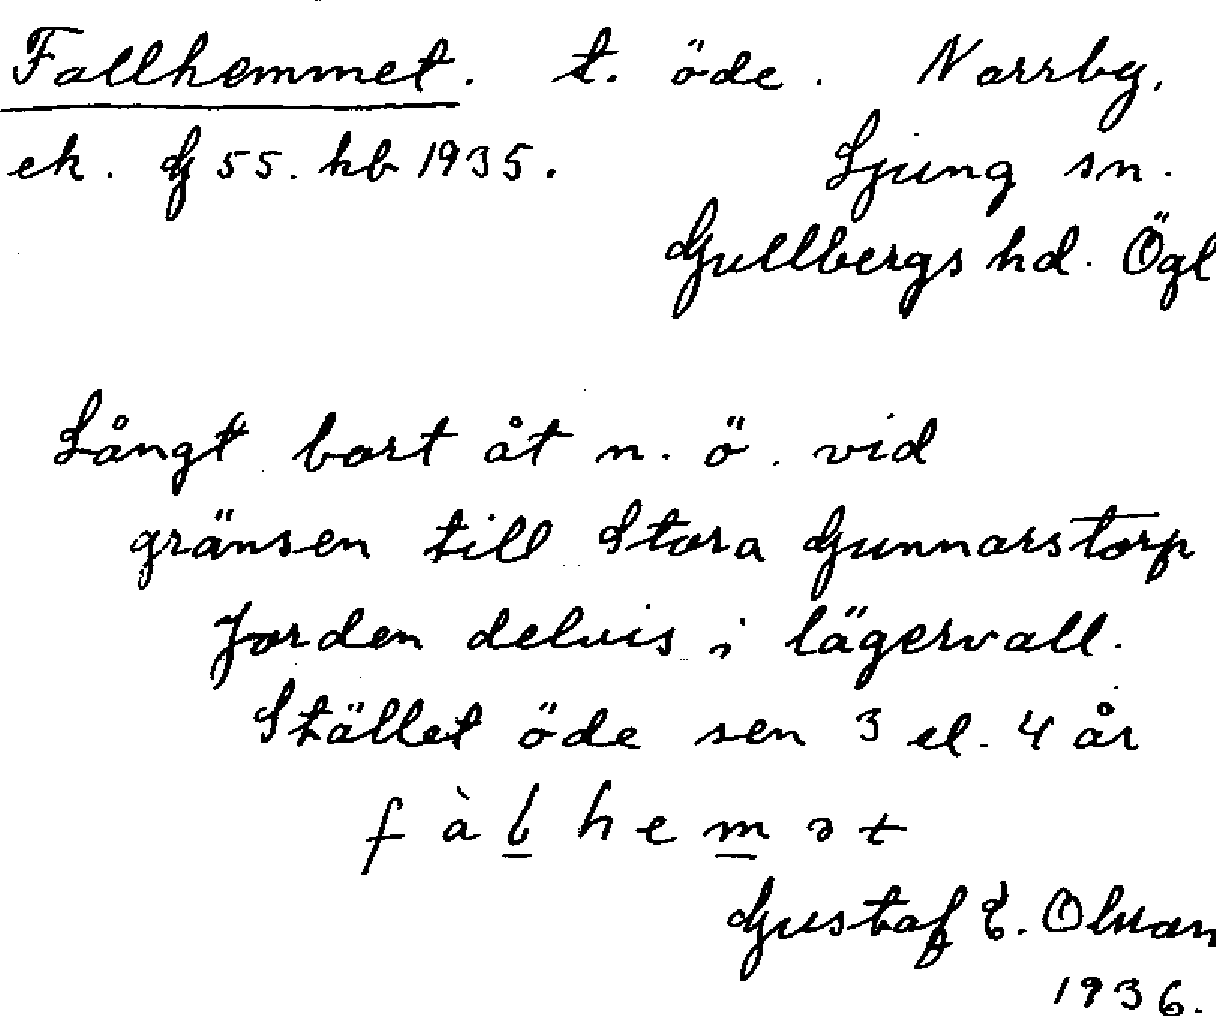 Fallhemmet. t. öde. Norrby,
ek. G 55. hb 1935. Ljung sn.
Gullbergs hd. Ögl
Långt bort åt n. ö. vid
gränsen till Stora Gunnarstorp
Jorden delvis i lägervall.
Stället öde sen 3 el. 4 år
f à l h e m ə t
Gustaf E. Olsson
1936.